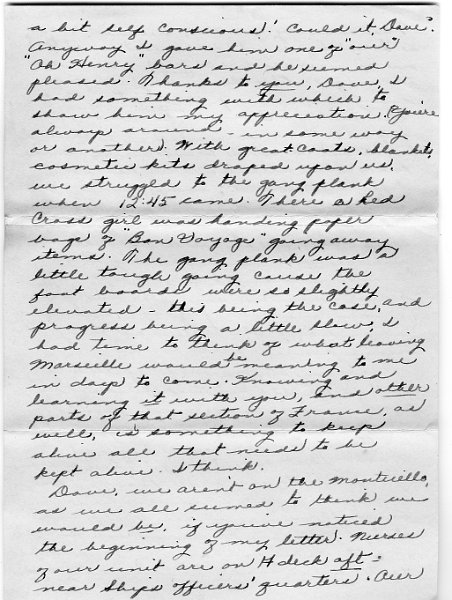 a bit self conscious! Could it, Dave?
Anyway I gave him one of "our"
"Oh Henry" bars and he seemed
pleased. Thanks to you, Dave, I
had something with which to
show him my appreciation. (You're
always around - in some way
or another). With great coats, blankets,
cosmetic kits draped upon us,
we struggled to the gang plank
when 12:45 came. There a Red
Cross girl was handing paper
bags of "Bon Voyage" going away
items. The gang plank was a
little tough going cause the
foot boards were so slightly
elevated - this being the case, and
progress being a little slow, I
had time to think of what leaving
Marseille would be meaning to me
in days to come. Knowing and
learning it with you, and other
parts of that section of France, as
well, is something to keep
alive all that needs to be
kept alive. I think.
Dave, we aren't on the Monticello,
as we all seemed to think we
would be, if you've noticed
the beginning of my letter. Nurses
of our unit are on H deck aft -
near ships officers' quarters. Our